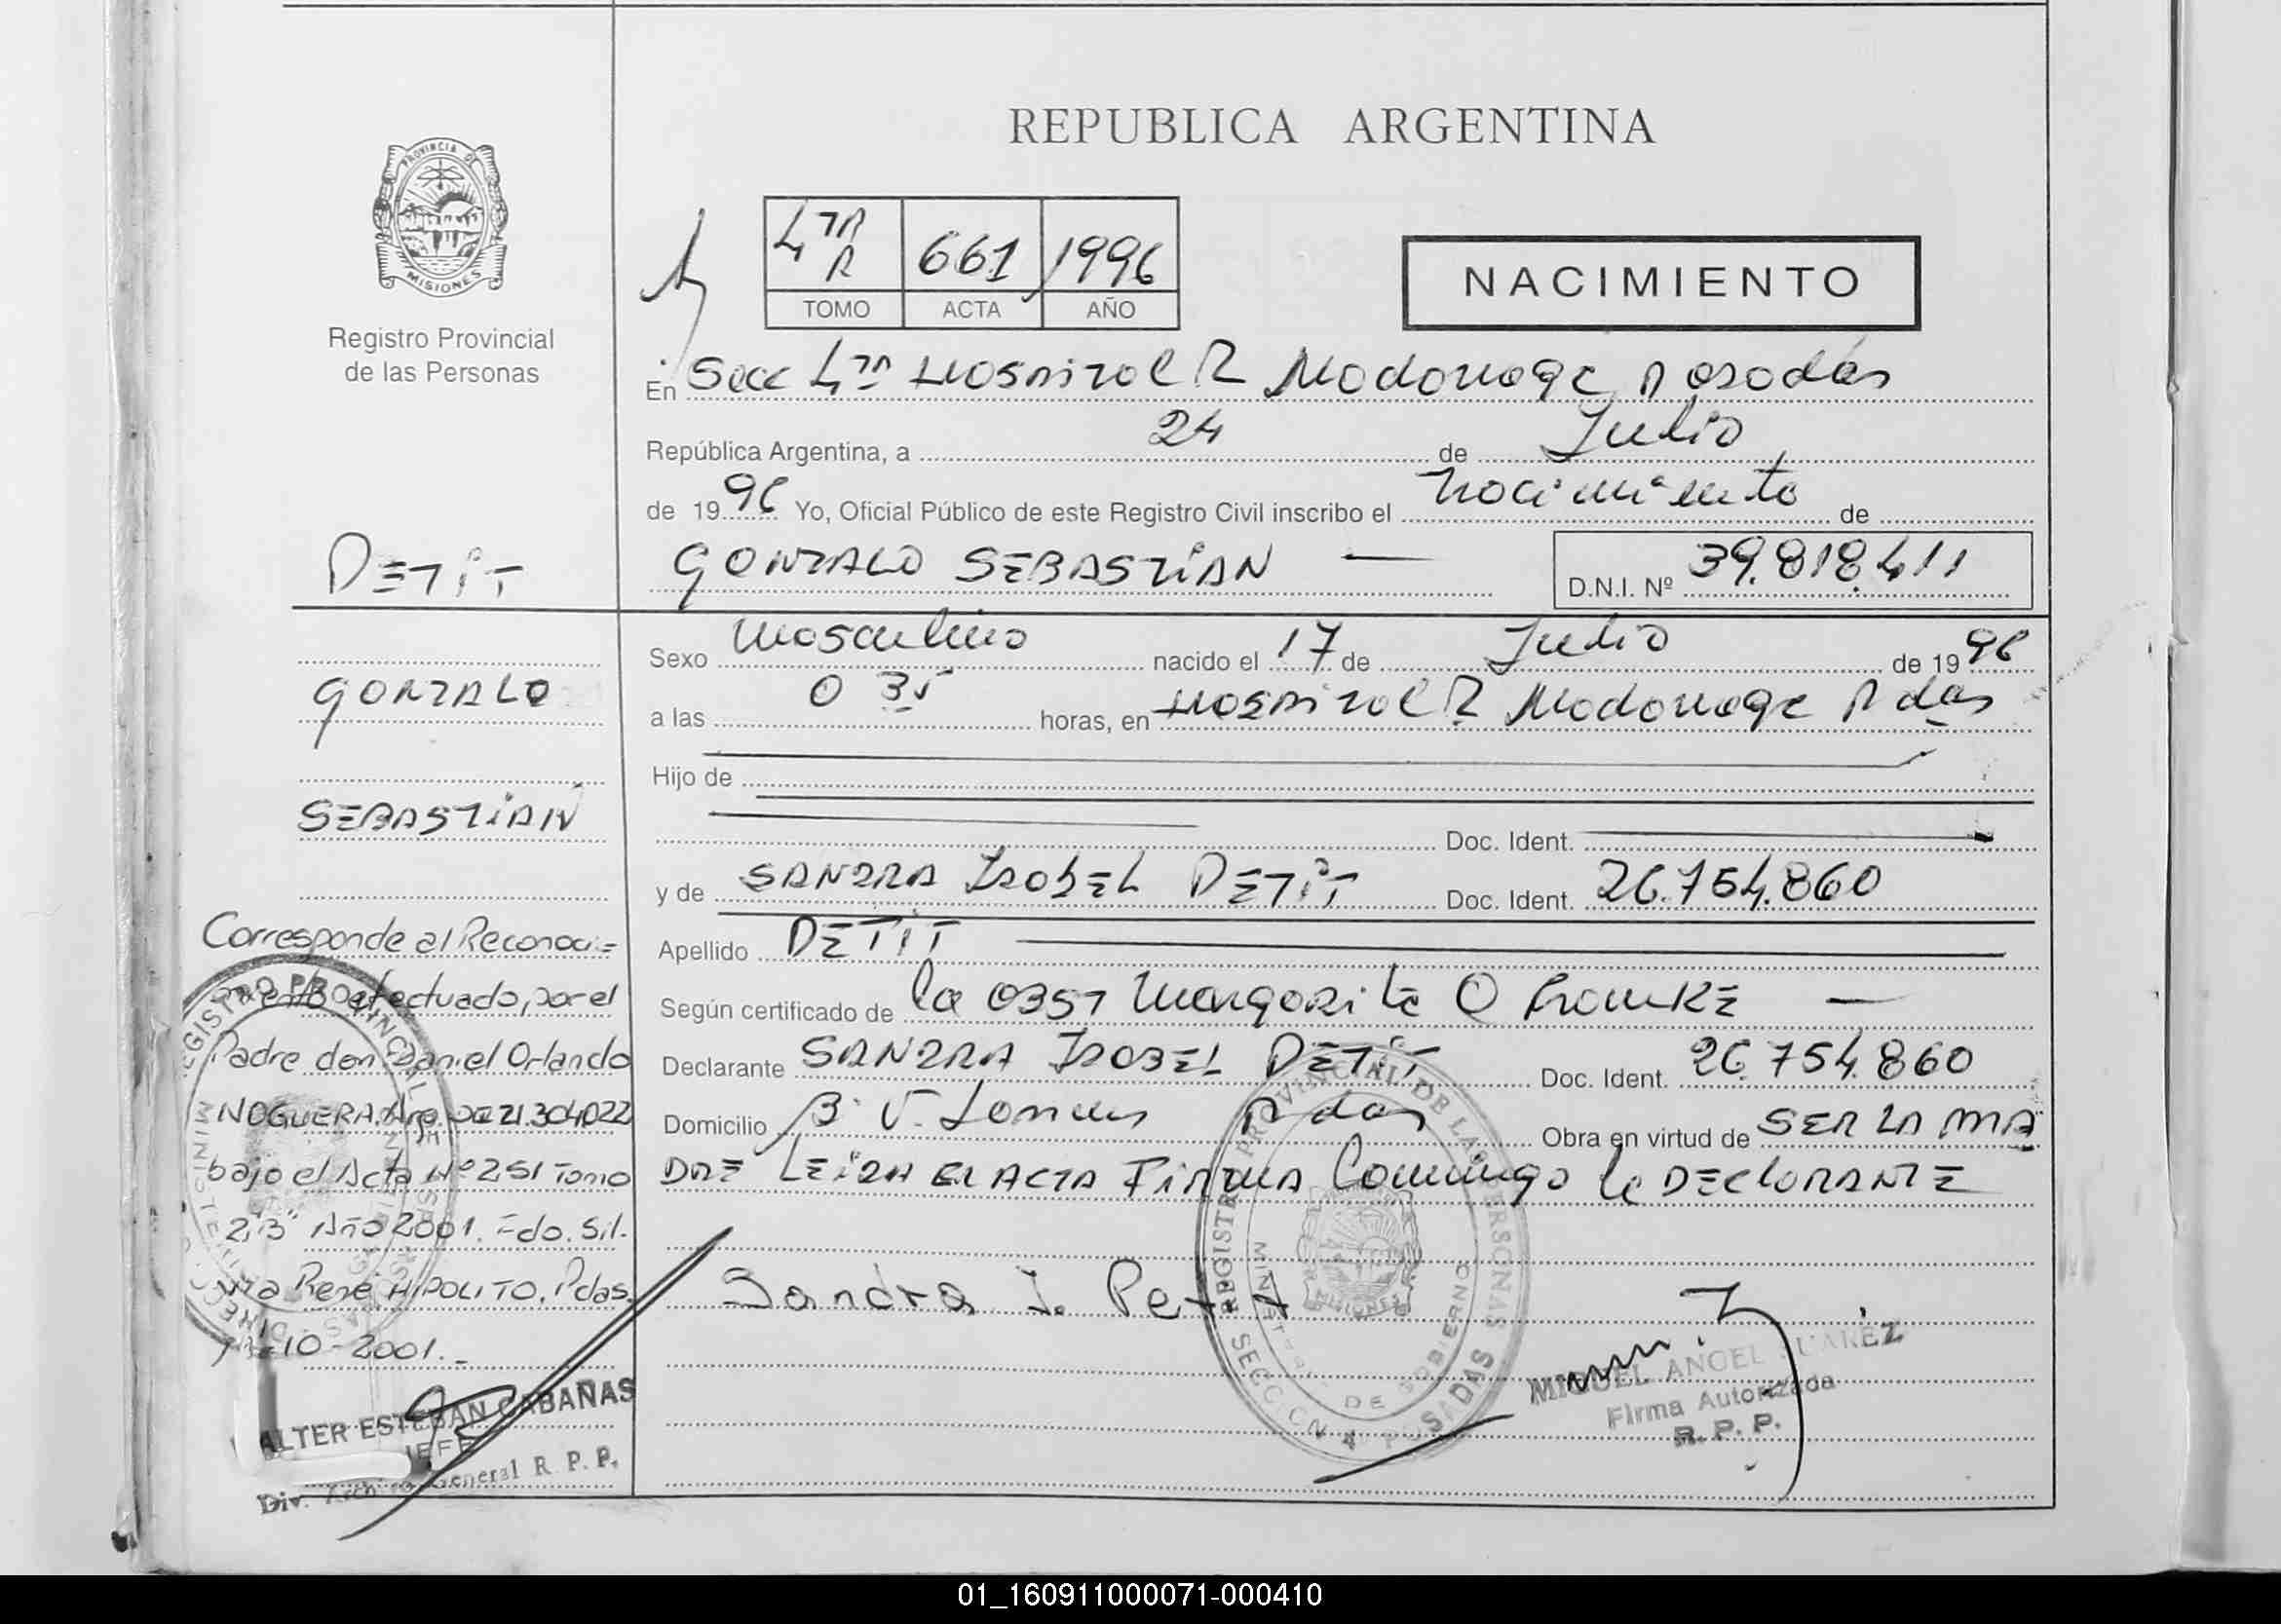 REPUBLICA ARGENTINA
PROVINCIA DE
MISIONES
Registro Provincial
de las Personas
4TA R 661 1996
TOMO ACTA AÑO
NACIMIENTO
En Secc 4TA Hospital R Madariaga Posadas
República Argentina, a 24 de Julio
de 1996 Yo, Oficial Público de este Registro Civil inscribo el nacimiento de
GONZALO SEBASTIAN
D.N.I. Nº 39.818.411
PETIT
GONZALO
SEBASTIAN
Sexo masculino nacido el 17 de Julio de 1996
a las 0 35 horas, en Hospital R Madariaga Pdas
Hijo de
Doc. Ident.
y de SANDRA ISABEL PETIT Doc. Ident. 26.754.860
Apellido PETIT
Según certificado de la OBST Margarita
Declarante SANDRA ISABEL PETIT Doc. Ident. 26.754.860
Domicilio Pdas Obra en virtud de SER LA MA
DRE LEIDA EL ACTA FIRMA Conmigo la DECLARANTE
Sandra I. Petit
Corresponde al Reconoci=
miento efectuado, por el
Padre don Daniel Orlando
NOGUERA. Arg. 21.304.022
bajo el Acta Nº 251 Tomo
2"B" Año 2001. Fdo. Sil.
via René HIPOLITO. Pdas.
10-2001.-
WALTER ESTEBAN CABAÑAS
JEFE
Div. Archivo General R. P. P.
REGISTRO PROVINCIAL DE LAS PERSONAS
MINISTERIO DE GOBIERNO
SECCION 4 POSADAS
MISIONES
MIGUEL ANGEL SUAREZ
Firma Autorizada
R. P. P.
01_160911000071-000410